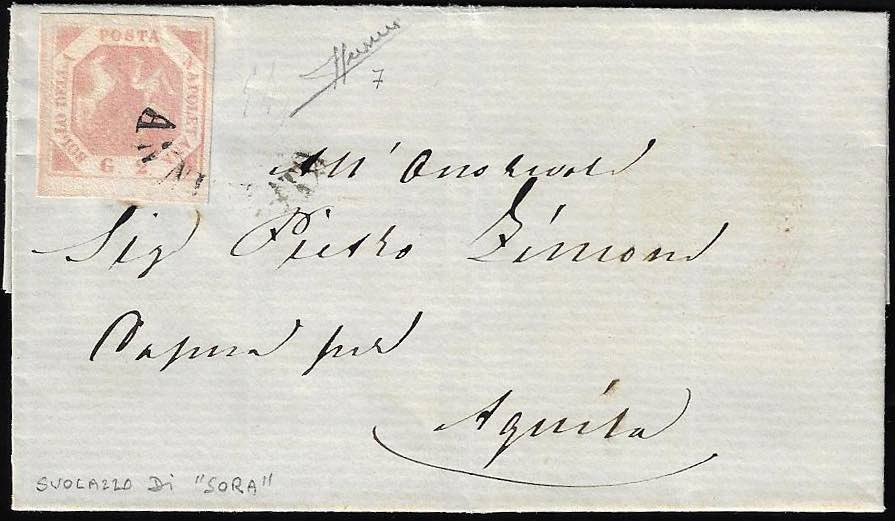 POSTA
NAPOLETANA
BOLLO DELLA
G 2
7
All' Onorevole
Sig Pietro Simoni
per
Aquila
SVOLAZZO Di "SORA"